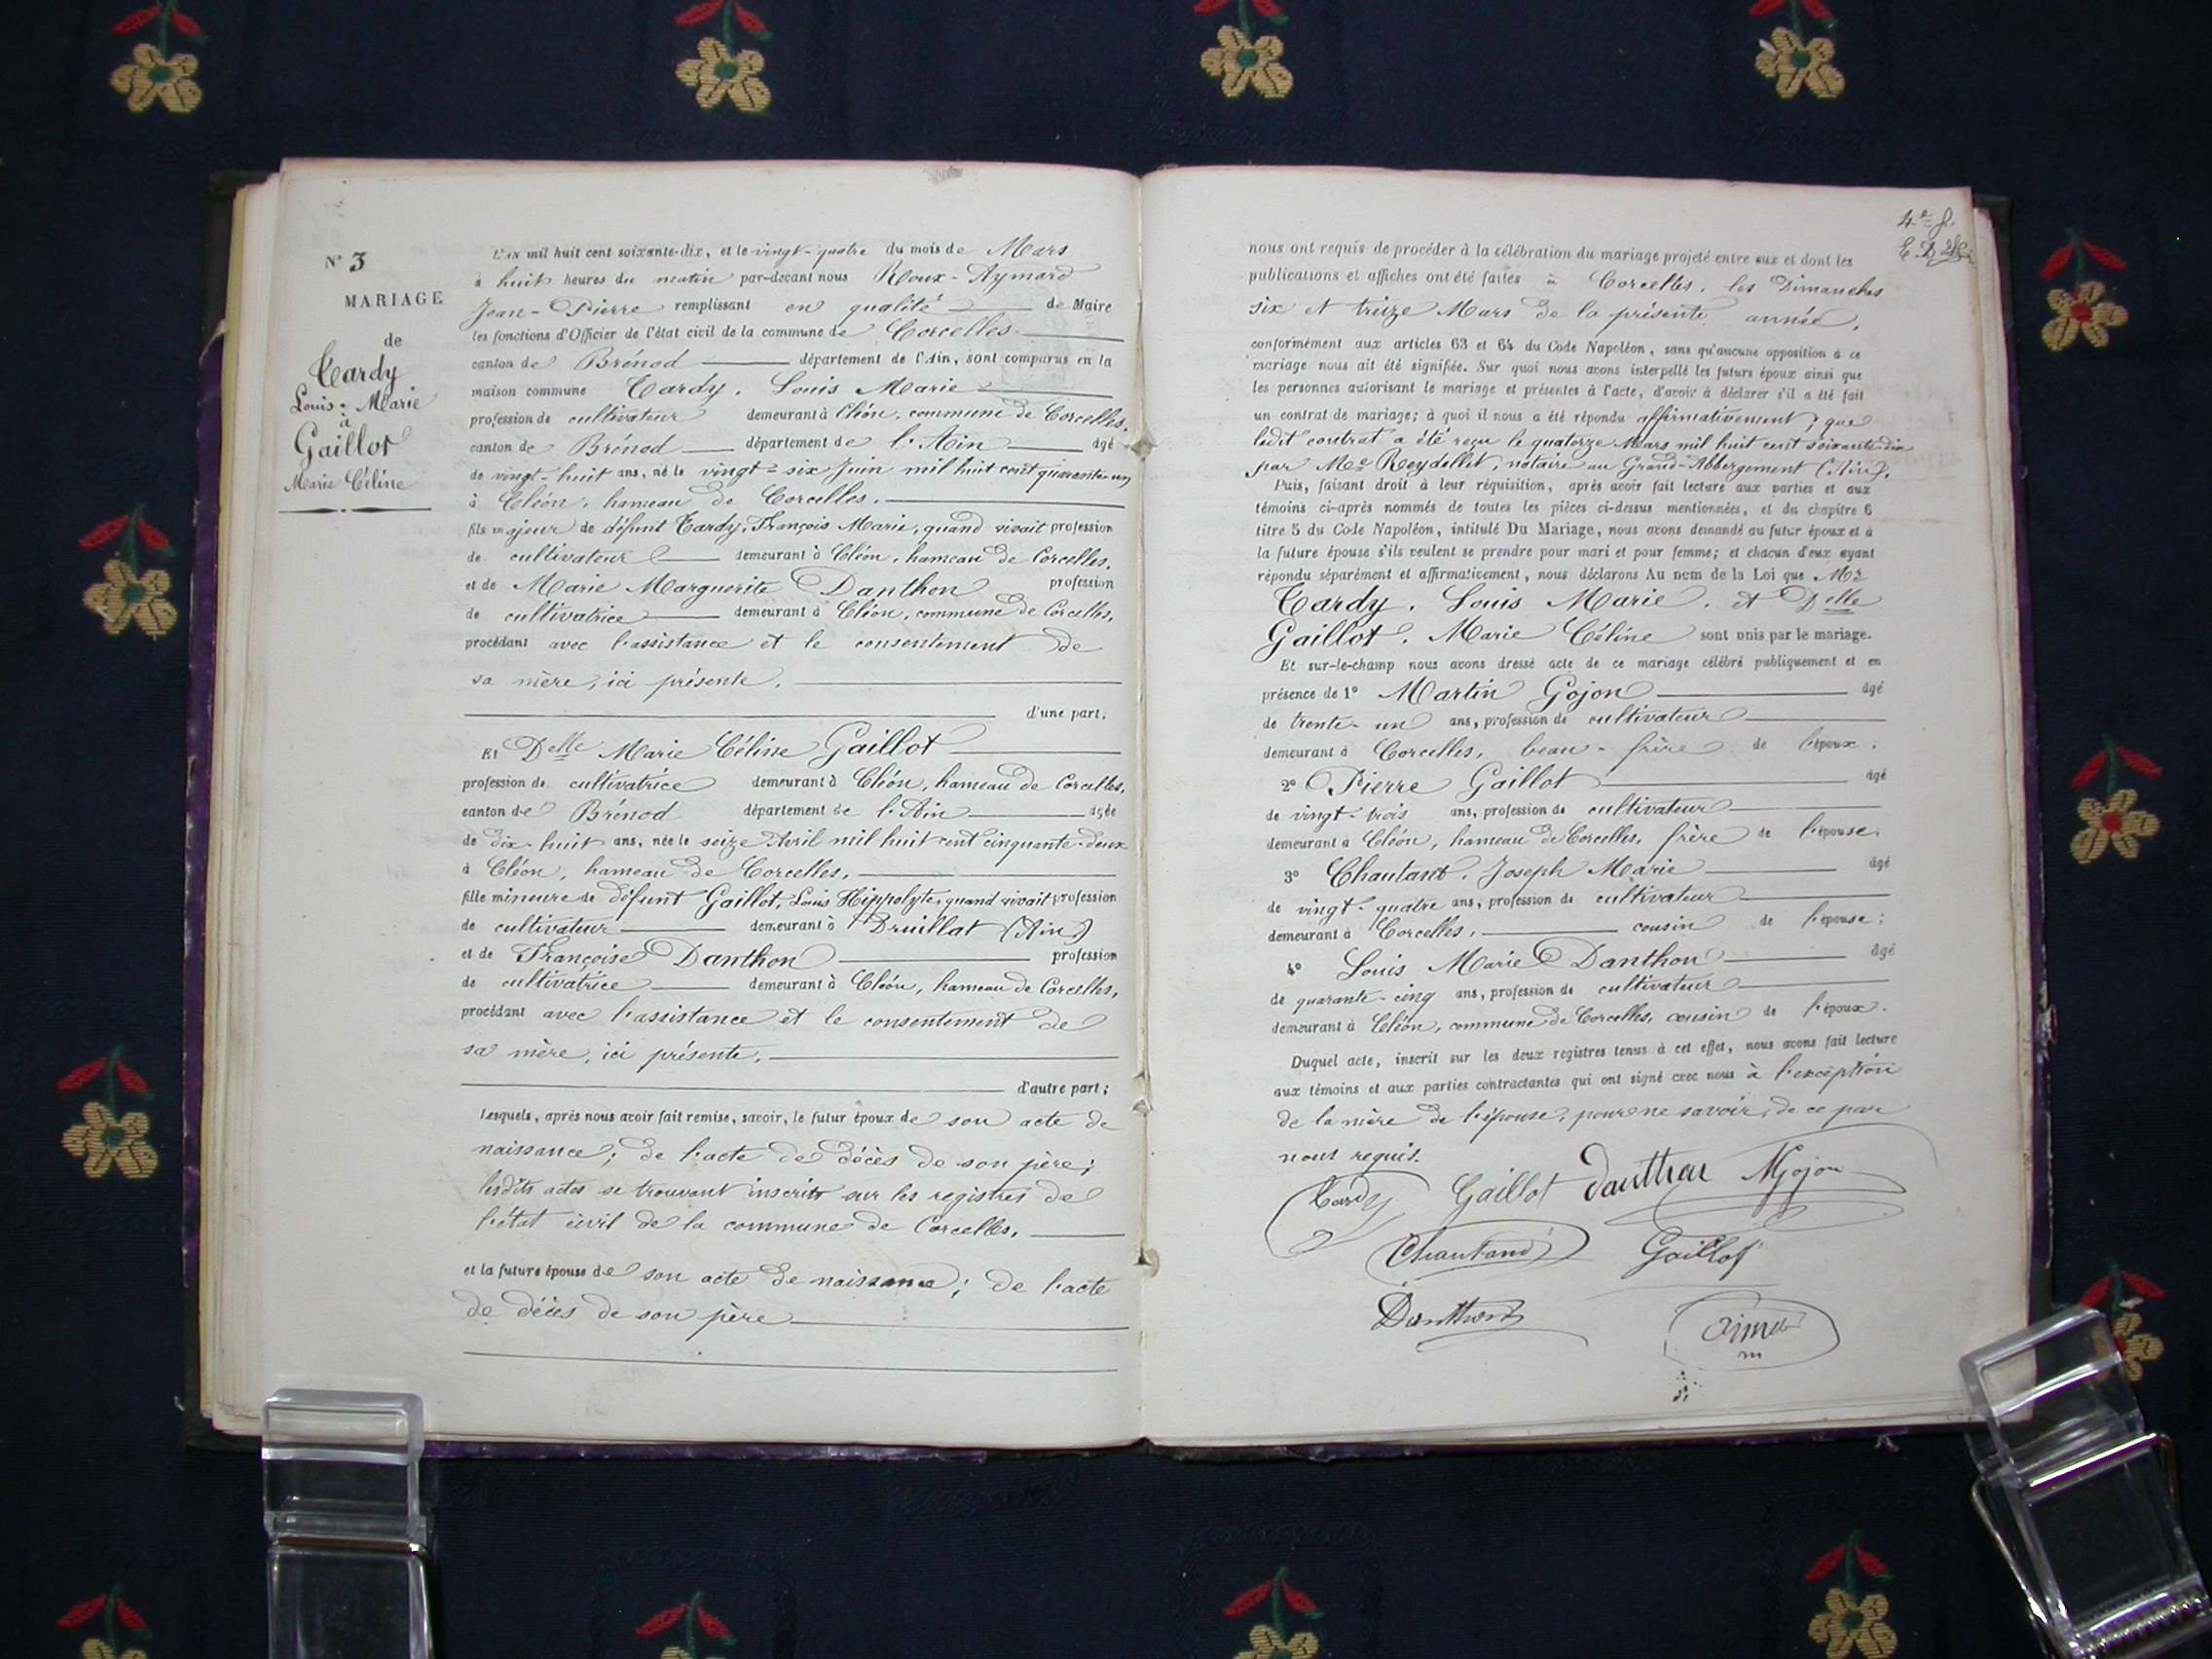 N° 3
MARIAGE
de
Tardy
Louis-Marie
à
Gaillot
Marie Céline
L'AN mil huit cent soixante-dix, et le vingt-quatre du mois de Mars
à huit heures du matin par-devant nous Roux-Aymard
Jean-Pierre remplissant en qualité de Maire
les fonctions d'Officier de l'état civil de la commune de Corcelles
canton de Brénod département de l'Ain, sont comparus en la
maison commune Tardy, Louis Marie
profession de cultivateur demeurant à Cléon, commune de Corcelles.
canton de Brénod département de l'Ain âgé
de vingt-huit ans, né le vingt-six Juin mil huit cent quarante-un
à Cléon, hameau de Corcelles.
fils majeur de défunt Tardy, François Marie, quand vivait profession
de cultivateur demeurant à Cléon, hameau de Corcelles,
et de Marie Marguerite Danthon profession
de cultivatrice demeurant à Cléon, commune de Corcelles,
procédant avec l'assistance et le consentement de
sa mère, ici présente.
d'une part;
Et Delle Marie Céline Gaillot
profession de cultivatrice demeurant à Cléon, hameau de Corcelles,
canton de Brénod département de l'Ain âgée
de dix-huit ans, née le seize Avril mil huit cent cinquante-deux
à Cléon, hameau de Corcelles,
fille mineure de défunt Gaillot, Louis Hippolyte, quand vivait profession
de cultivateur demeurant à Druillat (Ain)
et de Françoise Danthon profession
de cultivatrice demeurant à Cléon, hameau de Corcelles,
procédant avec l'assistance et le consentement de
sa mère, ici présente.
d'autre part;
Lesquels, après nous avoir fait remise, savoir, le futur époux de son acte de
naissance; de l'acte de décès de son père;
lesdits actes se trouvant inscrits sur les registres de
l'état civil de la commune de Corcelles.
et la future épouse de son acte de naissance; de l'acte
de décès de son père
4e f.
nous ont requis de procéder à la célébration du mariage projeté entre eux et dont les
publications et affiches ont été faites à Corcelles, les Dimanches
six et treize Mars de la présente année,
conformément aux articles 63 et 64 du Code Napoléon, sans qu'aucune opposition à ce
mariage nous ait été signifiée. Sur quoi nous avons interpellé les futurs époux ainsi que
les personnes autorisant le mariage et présentes à l'acte, d'avoir à déclarer s'il a été fait
un contrat de mariage; à quoi il nous a été répondu affirmativement; que
ledit contrat a été reçu le quatorze Mars mil huit cent soixante-dix
par Me Reydellet, notaire au Grand-Abbergement (Ain).
Puis, faisant droit à leur réquisition, après avoir fait lecture aux parties et aux
témoins ci-après nommés de toutes les pièces ci-dessus mentionnées, et du chapitre 6
titre 5 du Code Napoléon, intitulé Du Mariage, nous avons demandé au futur époux et à
la future épouse s'ils veulent se prendre pour mari et pour femme; et chacun d'eux ayant
répondu séparément et affirmativement, nous déclarons Au nom de la Loi que Mr
Tardy, Louis Marie, et Delle
Gaillot, Marie Céline sont unis par le mariage.
Et sur-le-champ nous avons dressé acte de ce mariage célébré publiquement et en
présence de 1° Martin Gojon âgé
de trente-un ans, profession de cultivateur
demeurant à Corcelles, beau-frère de l'époux;
2° Pierre Gaillot âgé
de vingt-trois ans, profession de cultivateur
demeurant à Cléon, hameau de Corcelles, frère de l'épouse;
3° Chautant, Joseph Marie âgé
de vingt-quatre ans, profession de cultivateur
demeurant à Corcelles, cousin de l'épouse;
4° Louis Marie Danthon âgé
de quarante-cinq ans, profession de cultivateur
demeurant à Cléon, commune de Corcelles, cousin de l'époux.
Duquel acte, inscrit sur les deux registres tenus à cet effet, nous avons fait lecture
aux témoins et aux parties contractantes qui ont signé avec nous à l'exception
de la mère de l'épouse, pour ne savoir, de ce par
nous requis.
Tardy Gaillot Danthon MGojon
Chautant Gaillot
Danthon